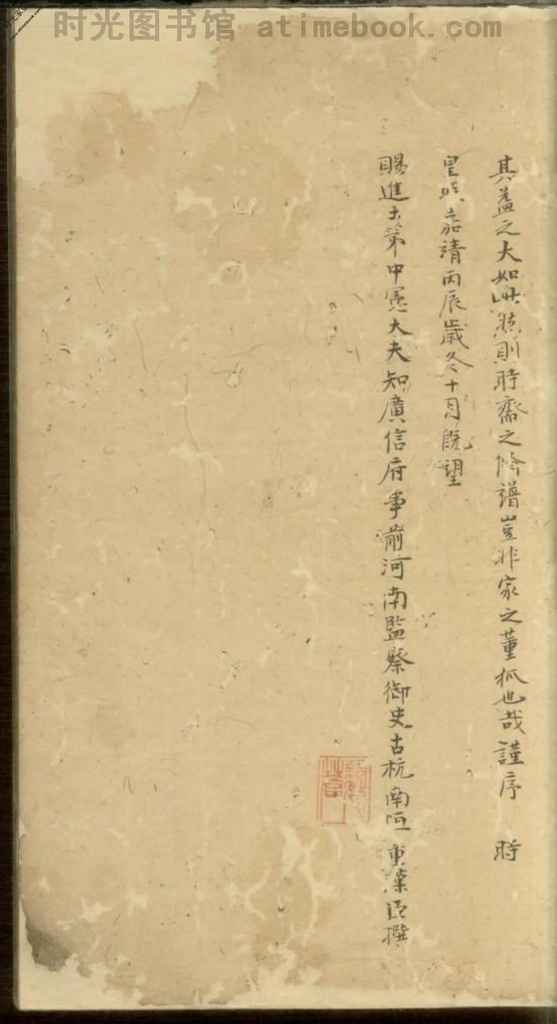 时光图书馆 atimebook.com
其益之大如此然則時齋之脩譜豈非家之董狐也哉謹序 時
皇明嘉靖丙辰歲冬十月既望
賜進士第中憲大夫知廣信府事前河南監察御史古杭南